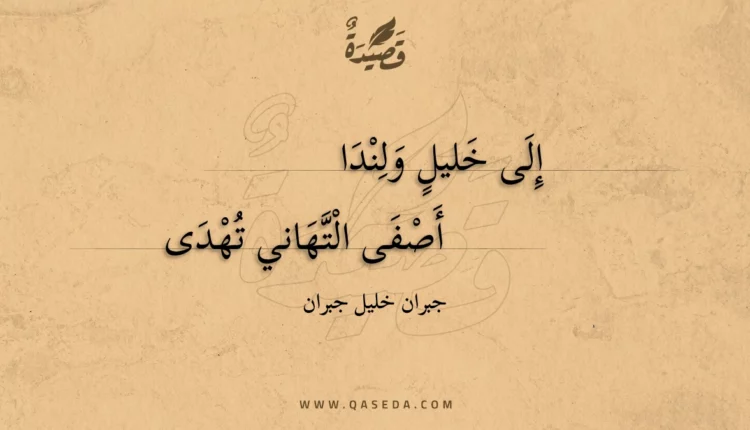 قَصِيْدَةٌ
إِلَى خَليلٍ وَلِنْدَا
أَصْفَى الْتَّهَاني تُهْدَى
جبران خليل جبران
WWW.QASEDA.COM